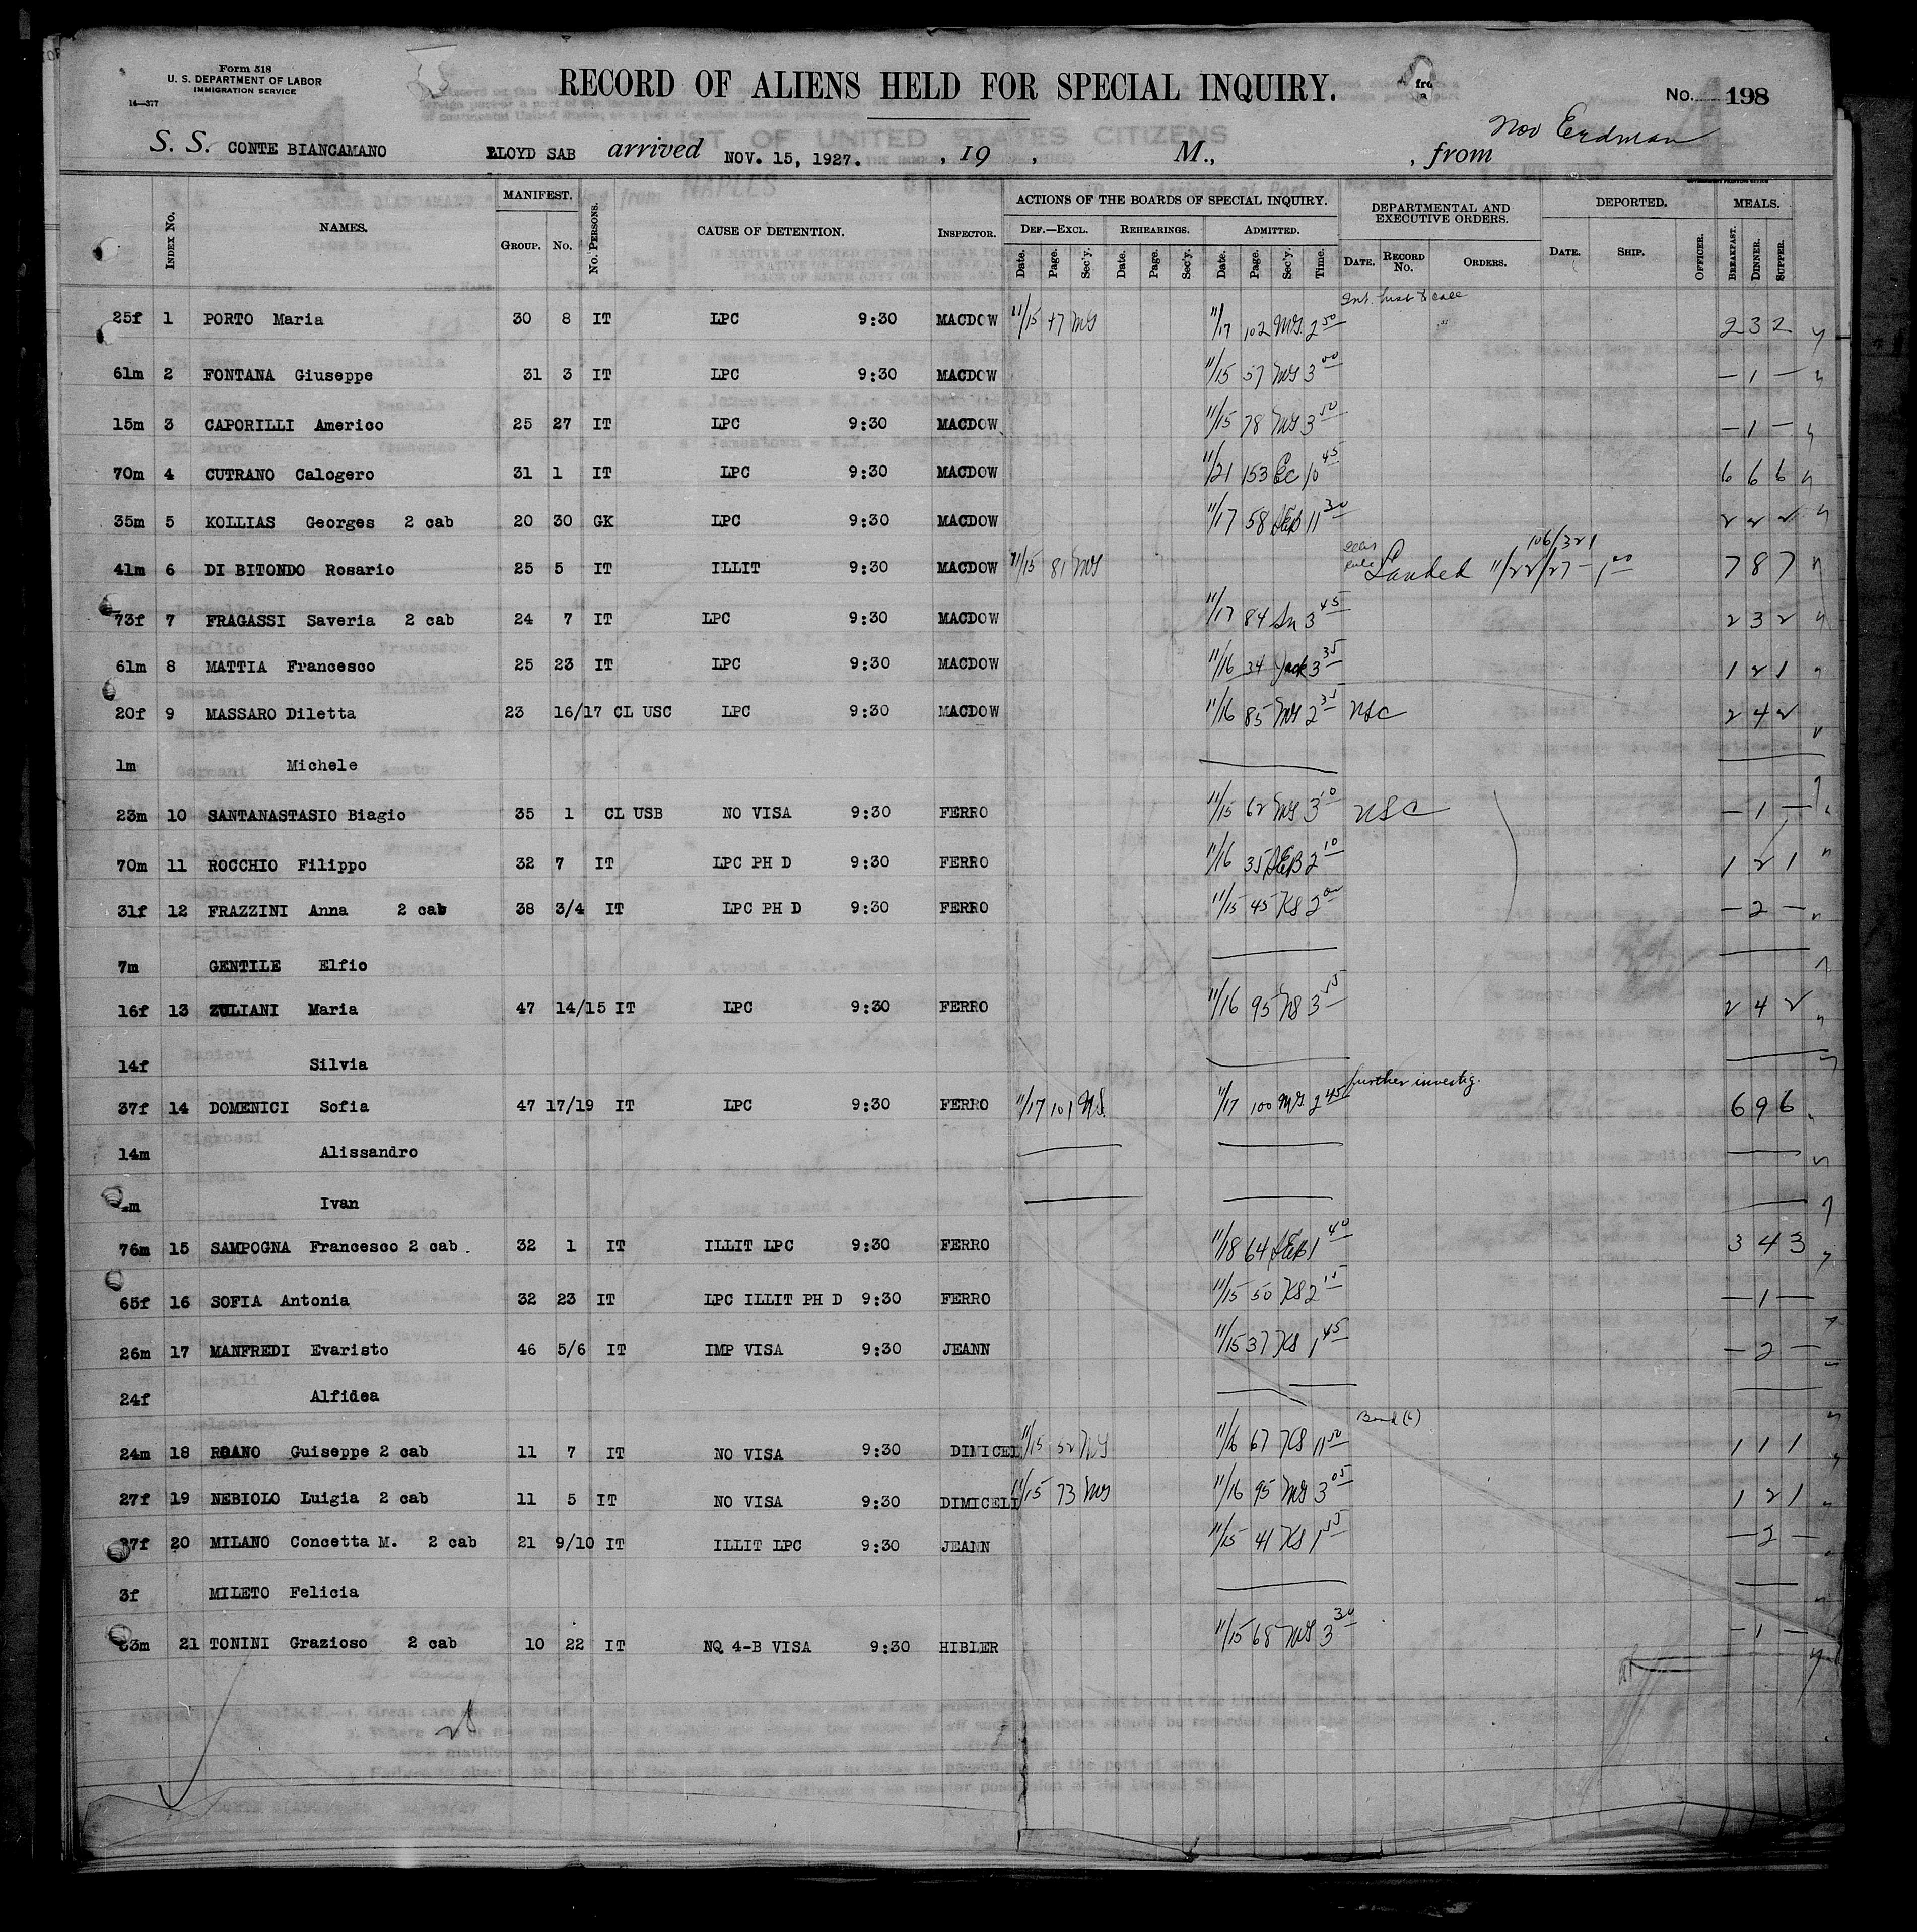 Form 518
U. S. DEPARTMENT OF LABOR
IMMIGRATION SERVICE
14—377
RECORD OF ALIENS HELD FOR SPECIAL INQUIRY.
No. 198
S. S. CONTE BIANCAMANO LLOYD SAB arrived NOV. 15, 1927. , 19 , M., , from Nov Erdman
INDEX No. NAMES. MANIFEST. GROUP. No. No. PERSONS. CAUSE OF DETENTION. INSPECTOR. ACTIONS OF THE BOARDS OF SPECIAL INQUIRY. DEPARTMENTAL AND EXECUTIVE ORDERS. DEPORTED. MEALS.
DEF.—EXCL. REHEARINGS. ADMITTED.
Date. Page. Sec'y. Date. Page. Sec'y. Date. Page. Sec'y. Time. DATE. RECORD No. ORDERS. DATE. SHIP. OFFICER. BREAKFAST. DINNER. SUPPER.
25f 1 PORTO Maria 30 8 IT LPC 9:30 MACDOW 11/15 47 MS 11/17 102 MS 2 50 2 3 2
61m 2 FONTANA Giuseppe 31 3 IT LPC 9:30 MACDOW 11/15 57 MS 3 00 — 1 —
15m 3 CAPORILLI Americo 25 27 IT LPC 9:30 MACDOW 11/15 78 MS 3 50 — 1 —
70m 4 CUTRANO Calogero 31 1 IT LPC 9:30 MACDOW 11/21 153 EC 10 45 6 6 6
35m 5 KOLLIAS Georges 2 cab 20 30 GK LPC 9:30 MACDOW 11/17 58 AEB 11 30 2 2 2
41m 6 DI BITONDO Rosario 25 5 IT ILLIT 9:30 MACDOW 11/15 81 MS Landed 11/22/27 — 1 00 106/321 7 8 7
73f 7 FRAGASSI Saveria 2 cab 24 7 IT LPC 9:30 MACDOW 11/17 84 3 45 2 3 2
61m 8 MATTIA Francesco 25 23 IT LPC 9:30 MACDOW 11/16 34 3 35 1 2 1
20f 9 MASSARO Diletta 23 16/17 CL USC LPC 9:30 MACDOW 11/16 85 MS 2 35 USC 2 4 2
1m Michele
23m 10 SANTANASTASIO Biagio 35 1 CL USB NO VISA 9:30 FERRO 11/15 62 MS 3 10 USC — 1 —
70m 11 ROCCHIO Filippo 32 7 IT LPC PH D 9:30 FERRO 11/16 35 AEB 2 10 1 2 1
31f 12 FRAZZINI Anna 2 cab 38 3/4 IT LPC PH D 9:30 FERRO 11/15 45 KS 2 00 — 2 —
7m GENTILE Elfio
16f 13 ZULIANI Maria 47 14/15 IT LPC 9:30 FERRO 11/16 95 3 15 2 4 2
14f Silvia
37f 14 DOMENICI Sofia 47 17/19 IT LPC 9:30 FERRO 11/17 101 MS 11/17 100 MS 2 45 further investig. 6 9 6
14m Alissandro
m Ivan
76m 15 SAMPOGNA Francesco 2 cab. 32 1 IT ILLIT LPC 9:30 FERRO 11/18 64 AEB 1 40 3 4 3
65f 16 SOFIA Antonia 32 23 IT LPC ILLIT PH D 9:30 FERRO 11/15 50 KS 2 15 — 1 —
26m 17 MANFREDI Evaristo 46 5/6 IT IMP VISA 9:30 JEANN 11/15 37 KS 1 45 — 2 —
24f Alfidea
24m 18 ROANO Guiseppe 2 cab 11 7 IT NO VISA 9:30 DIMICEL 11/15 52 MS 11/16 67 KS 11 50 Bond 1 1 1
27f 19 NEBIOLO Luigia 2 cab 11 5 IT NO VISA 9:30 DIMICELI 11/15 73 MS 11/16 95 MS 3 05 1 2 1
37f 20 MILANO Concetta M. 2 cab 21 9/10 IT ILLIT LPC 9:30 JEANN 11/15 41 KS 1 55 — 2 —
3f MILETO Felicia
33m 21 TONINI Grazioso 2 cab 10 22 IT NQ 4-B VISA 9:30 HIBLER 11/15 68 MS 3 30 — 1 —
28